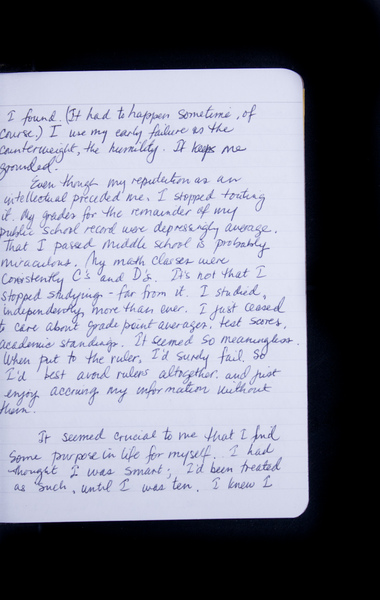 I found. (It had to happen sometime, of
course.) I use my early failure as the
counterweight, the humility. It keeps me
grounded.
Even though my reputation as an
intellectual preceded me, I stopped touting
it. My grades for the remainder of my
public school record were depressingly average.
That I passed middle school is probably
miraculous. My math classes were
consistently C's and D's. It's not that I
stopped studying - far from it. I studied,
independently, more than ever. I just ceased
to care about grade point averages, test scores,
academic standings. It seemed so meaningless.
When put to the ruler, I'd surely fail. So
I'd best avoid rulers altogether and just
enjoy accruing my information without
them.
It seemed crucial to me that I find
some purpose in life for myself. I had
thought I was smart; I'd been treated
as such, until I was ten. I knew I